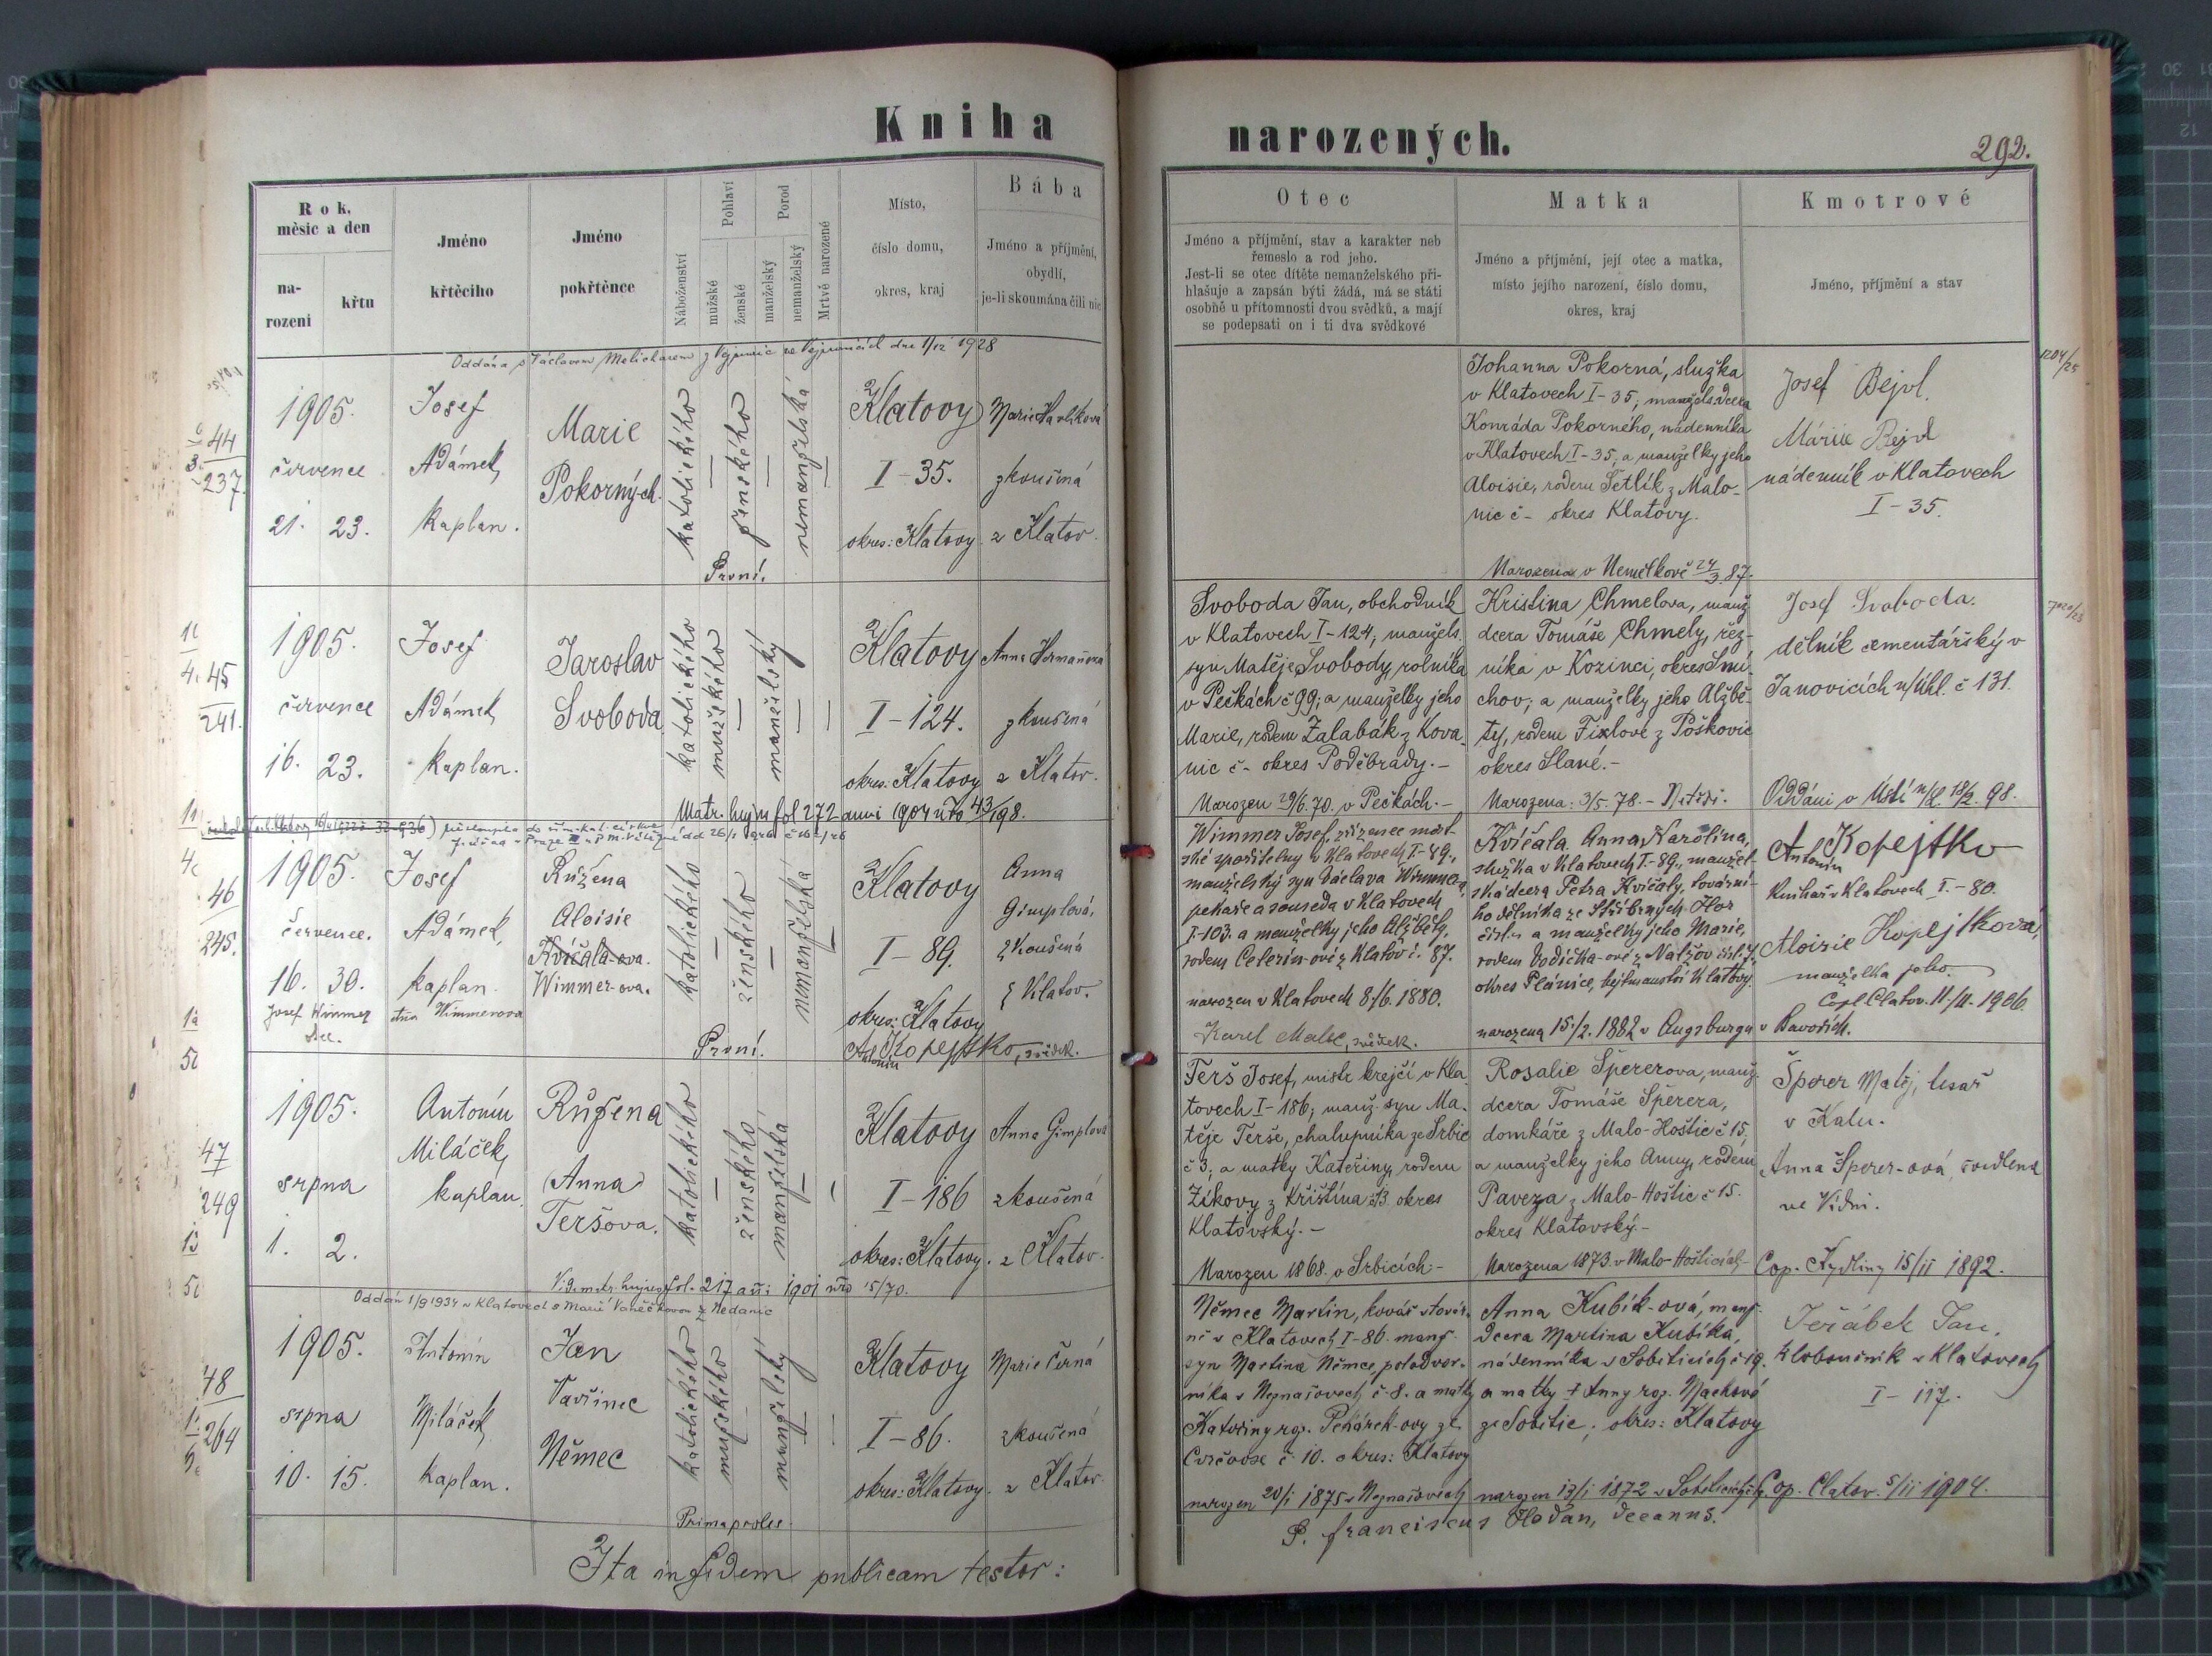 Kniha
narozených.
292.
Rok,
měsíc a den
na-
rozeni
křtu
Jméno
křtěcího
Jméno
pokřtěnce
Náboženství
Pohlaví
mužské
ženské
Porod
manželský
nemanželský
Mrtvě narozené
Místo,
číslo domu,
okres, kraj
Bába
Jméno a příjmění,
obydlí,
je-li skoumána čili nic
Otec
Jméno a příjmění, stav a karakter neb
řemeslo a rod jeho.
Jest-li se otec dítěte nemanželského při-
hlašuje a zapsán býti žádá, má se státi
osobně u přítomnosti dvou svědků, a mají
se podepsati on i ti dva svědkové
Matka
Jméno a příjmění, její otec a matka,
místo jejího narození, číslo domu,
okres, kraj
Kmotrové
Jméno, příjmění a stav
Oddána s Václavem Melicharem z Vejprnic ve Vejprnicích dne 1/12 1928
44
237.
1905.
července
21. 23.
Josef
Adámek,
kaplan.
Marie
Pokorných.
katolického
ženského
nemanželská
První.
Klatovy
I-35.
okres: Klatovy.
Marie Havlíková
zkoušená
z Klatov.
Johanna Pokorná, služka
v Klatovech I-35; manžels. dcera
Konráda Pokorného, nádenníka
v Klatovech I-35, a manželky jeho
Aloisie, rodem Šetlík z Malo-
nic č - okres Klatovy.
Narozena v Nemilkově 24/3. 87.
Josef Bejvl.
Marie Bejvl
nádenník v Klatovech
I-35.
45
241.
1905.
července
16. 23.
Josef
Adámek,
kaplan.
Jaroslav
Svoboda
katolického
mužského
manželský
Klatovy
I-124.
okres: Klatovy
Anna Hermanová
zkoušená
z Klatov.
Matr. hujus fol 272 anni 1904 nro 43/198.
Svoboda Jan, obchodník
v Klatovech I-124, manžels.
syn Matěje Svobody, rolníka
v Pečkách č 99; a manželky jeho
Marie, rodem Žalabák z Kova-
nic č - okres Poděbrady.-
Narozen 29/6. 70. v Pečkách.-
Kristina Chmelova, manž
dcera Tomáše Chmely, řez-
níka v Kozinci, okres Smí-
chov; a manželky jeho Alžbě-
ty, rodem Fixlové z Poškovic
okres Slané.-
Narozena: 3/5. 78. -
Josef Svoboda.
dělník cementářský v
Janovicích n/Uhl. č 131.
Oddáni v Ústí n/L 13/2. 98.
46
245.
1905.
července.
16. 30.
Josef
Adámek,
kaplan.
Růžena
Aloisie
Kvíčala-ova.
Wimmer-ova.
Josef Wimmer
otec.
katolického
ženského
nemanželská
První.
Klatovy
I-89.
okres: Klatovy
Antonín Kopejtko, svědek.
Anna
Gimplová,
zkoušená
z Klatov.
Wimmer Josef, zřízenec měst-
ské spořitelny v Klatovech I-89.,
manželský syn Václava Wimmera,
pekaře a souseda v Klatovech
I-103. a manželky jeho Alžběty,
rodem Ceterín-ové z Klatov č. 87.
narozen v Klatovech 8/6. 1880.
Karel Malec, svědek.
Kvíčala Anna Karolina,
služka v Klatovech I-89., manžel-
ská dcera Petra Kvíčaly, tovární-
ho dělníka ze Stříbrných Hor
číslo a manželky jeho Marie,
rodem Vodička-ové z Nalžov
okres Plánice, hejtmanství Klatovy.
narozena 15/2. 1882 v Augsburgu v Bavořích.
Antonín Kopejtko
knihař v Klatovech I.-80.
Aloisie Kopejtková,
manželka jeho.
Cop. Clatov. 11./11. 1906.
47
249
1905.
srpna
1. 2.
Antonín
Miláček,
kaplan.
Růžena
Anna
Teršova.
katolického
ženského
manželská
Klatovy
I-186
okres: Klatovy.
Anna Gimplová
zkoušená
z Klatov.
Vide matr. hujus fol. 217 anni 1901 nro 15/70.
Terš Josef, mistr krejčí v Kla-
tovech I-186; manž. syn Ma-
těje Terše, chalupníka ze Srbic
č 3; a matky Kateřiny, rodem
Zíkovy z Křištína č 13 okres
Klatovský.-
Narozen 1868. v Srbicích-
Rosalie Špererova, manž.
dcera Tomáše Šperera,
domkáře z Malo-Hoštic č 15,
a manželky jeho Anny, rodem
Paveza z Malo-Hoštic č 15.
okres Klatovský.-
Narozena 1873. v Malo-Hošticích-
Šperer Matěj, tesař
v Kalu.
Anna Šperer-ová, švadlena
ve Vídni.
Cop. Kydliny 15/11 1892.
Oddán 1/9 1934 v Klatovech s Marií Vaněčkovou z Nedanic
48
264
1905.
srpna
10. 15.
Antonín
Miláček,
kaplan.
Jan
Vavřinec
Němec
katolického
mužského
manželský
Prima proles.
Klatovy
I-86.
okres: Klatovy.
Marie Černá
zkoušená
z Klatov.
Němec Martin, kovář v továr-
ně v Klatovech I-86. manž.
syn Martina Němce, polodvor-
níka v Nejnašovech č. 8. a matky
Kateřiny roz. Pekárek-ovy ze
Cvrčovse č. 10. okres: Klatovy
narozen 20/1 1875 v Nejnašovech
Anna Kubík-ová, manž.
dcera Martina Kubíka,
nádenníka v Soběticích č 19.
a matky † Anny roz. Machové
ze Sobětic, okres: Klatovy
narozen 13/1 1872 v Soběticích
Jeřábek Jan.
kloboučník v Klatovech
I-117.
Cop. Clatov. 5/11 1904.
Ita in fidem publicam testor:
P. Franciscus Hodan, decanus.